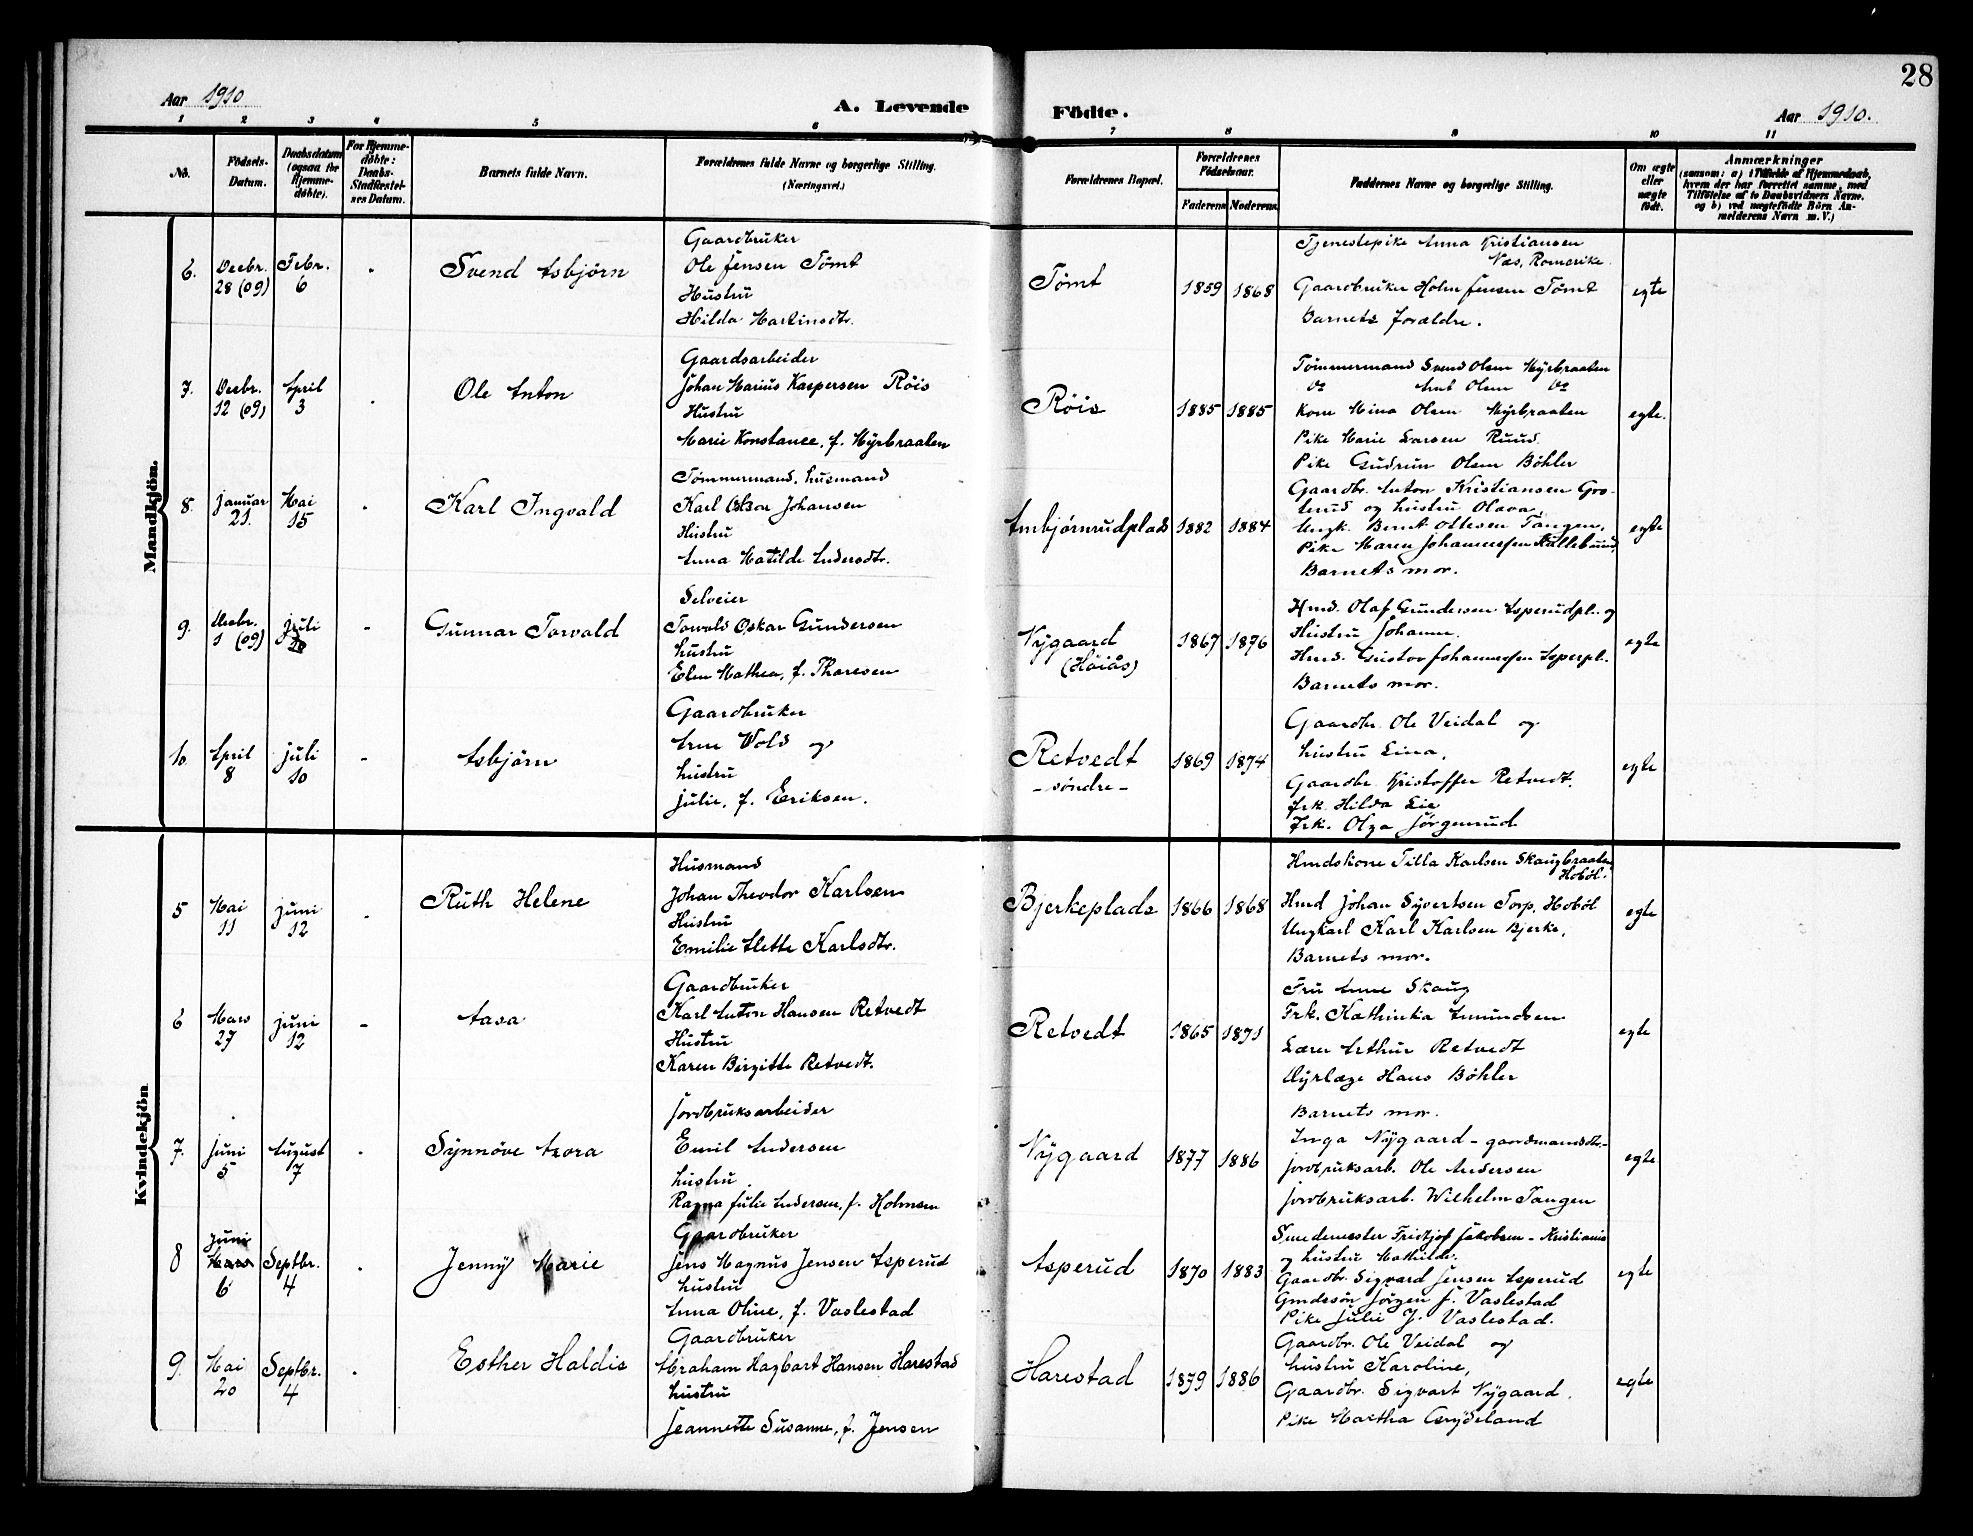 28
Aar 1910.
A. Levende
Födte.
Aar 1910.
1 2 3 4 5 6 7 8 9 10 11
No.
Födsels-Datum.
Daabsdatum (ogsaa for Hjemme-døbte).
For Hjemme-døbte: Daabs-Stadfæstel-ses Datum.
Barnets fulde Navn.
Forældrenes fulde Navne og borgerlige Stilling. (Næringsvei.)
Forældrenes Bopæl.
Forældrenes Födselsaar.
Faderens Moderens
Faddernes Navne og borgerlige Stilling.
Om ægte eller uægte födt.
Anmærkninger
(saasom: a) i Tilfælde af Hjemmedaab, hvem der har forrettet samme, med Tilföielse af to Daabsvidners Navne, og b) ved uægtefödte Börn An-melderens Navn m. V.)
Mandkjön.
6.
Decbr. 28 (09)
Febr. 6
Svend Asbjörn
Gaardbruker
Ole Jensen Tömt
Hustru
Hilda Martinsdtr.
Tömt
1859 1868
Tjenestepike Anna Kristiansen
Næs, Romerike.
Gaardbruker Holm Jensen Tömt
Barnets forældre.
egte
7.
Decbr. 12 (09)
April 3
Ole Anton
Gaardsarbeider
Johan Marius Kaspersen Röis
Hustru
Marie Konstance, f. Myrbraaten
Röis
1885 1885
Tømmermand Svend Olsen Myrbraaten
Do Amt Olsen Do
Kone Mina Olsen Myrbraaten
Pike Marie Larsen Ruud.
Pike Gudrun Olsen Böhler
egte.
8.
Januar 21.
Mai 15
Karl Ingvald
Tömmermand, husmand
Karl Oskar Johansen
Hustru
Anna Matilde Andersdtr.
Ambjørnrudplads
1882 1884
Gaardbr. Anton Kristiansen Gros-
trud og hustru Olava,
Ungk. Bernt Ottesen Tangen,
Pike Maren Johannessen
Barnets mor.
egte
9.
Decbr. 1 (09)
Juli
Gunnar Torvald
Selveier
Torvald Oskar Gundersen
hustru
Elen Mathea, f. Thoresen
Nygaard
(Höiås)
1867 1876
Hmd. Olaf Gundersen Asperudpl. og
Hustru Johanne.
Hmd. Gustav Johannessen Asperpl.
Barnets mor.
egte
10
April 8
Juli 10
Asbjørn
Gaardbruker
Arne Wold og
hustru
Julie, f. Eriksen.
Retvedt
- søndre -
1869 1874
Gaardbr. Ole Veidal og
hustru Lina,
Gaardbr. Kristoffer Retvedt.
Frk. Hilda Lie
Frk. Olga Jörgenrud
egte
Kvindekjön
5
Mai 11
Juni 12
Ruth Helene
Husmand
Johan Theodor Karlsen
Hustru
Emilie Mette Karlsdtr.
Bjerkeplads
1866 1868
Hmdskone Tilla Karlsen Skaugbraaten
Hoböl.
Hmd Johan Syvertsen Torp, Hoböl
Ungkarl Karl Karlsen Bjerke,
Barnets mor.
egte
6
Mars 27
Juni 12
Aasa
Gaardbruker
Karl Anton Hansen Retvedt
Hustru
Karen Birgitte Retvedt.
Retvedt
1865 1871
Fru Anne Skaug
Frk. Kathinka Amundsen
Lærer Arthur Retvedt
Dyrlæge Hans Böhler
Barnets mor.
egte
7.
Juni 5
August 7
Synnöve Azora
Jordbruksarbeider
Emil Andersen
hustru
Ragna Julie Andersen, f. Holmsen
Nygaard
1877 1886
Inga Nygaard - gaardmandsdtr. -
Jordbruksarb. Ole Andersen
Jordbruksarb. Wilhelm Tangen
egte
8
Juni
Mars
6
Septbr. 4
Jenny Marie
Gaardbruker
Jens Magnus Jensen Asperud
hustru
Anna Oline, f. Vaslestad
Asperud
1870 1883
Smedemester Fridtjof Jakobsen - Kristiania
og hustru Mathilde.
Gaardbr. Sigvard Jensen Asperud
Gmdssön Jörgen J. Vaslestad
Pike Julie J. Vaslestad.
egte
9.
Mai 20
Septbr. 4
Esther Haldis
Gaardbruker
Abraham Hagbart Hansen Harestad
hustru
Jeannette Susanne, f. Jensen
Harestad
1879 1886
Gaardbr. Ole Veidal og
hustru Karoline,
Gaardbr. Sigvart Nygaard.
Pike Martha
egte